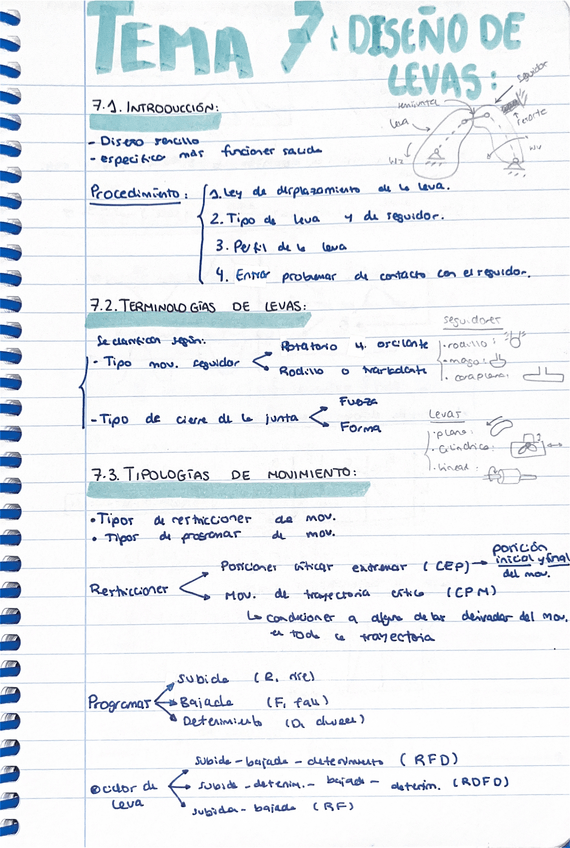 TEMA 7: DISEÑO DE
LEVAS:
seguidor
Leva
resorte
W2
7.1. INTRODUCCIÓN:
- Diseño sencillo
- especifico más funciones salida
Procedimiento: 1. Ley de desplazamiento de la leva.
2. Tipo de leva y de seguidor.
3. Perfil de la leva
4. Evitar problemas de contacto con el seguidor.
7.2. TERMINOLOGÍAS DE LEVAS:
Se clasifican según:
- Tipo mov. seguidor
Rotatorio u. oscilante
Rodillo o trasladante
seguidores
· rodillo:
· cara plana:
- Tipo de cierre de la junta
Fuerza
Forma
Levas
· plana:
· Cilíndrica:
· Lineal:
7.3. TIPOLOGÍAS DE MOVIMIENTO:
• Tipos de restricciones de mov.
• Tipos de programas de mov.
Restricciones
Posiciones críticas extremas (CEP) → posición
inicial y final
del mov.
Mov. de trayectoria crítica (CPM)
↳ condiciones a alguna de las derivadas del mov.
en toda la trayectoria
Programas
Subida (R, rise)
Bajada (F, fall)
Detenimiento (D, dwell)
Subida - bajada - detenimiento (RFD)
leva
subida - detenim. - bajada - detenim. (RDFD)
subida - bajada (RF)